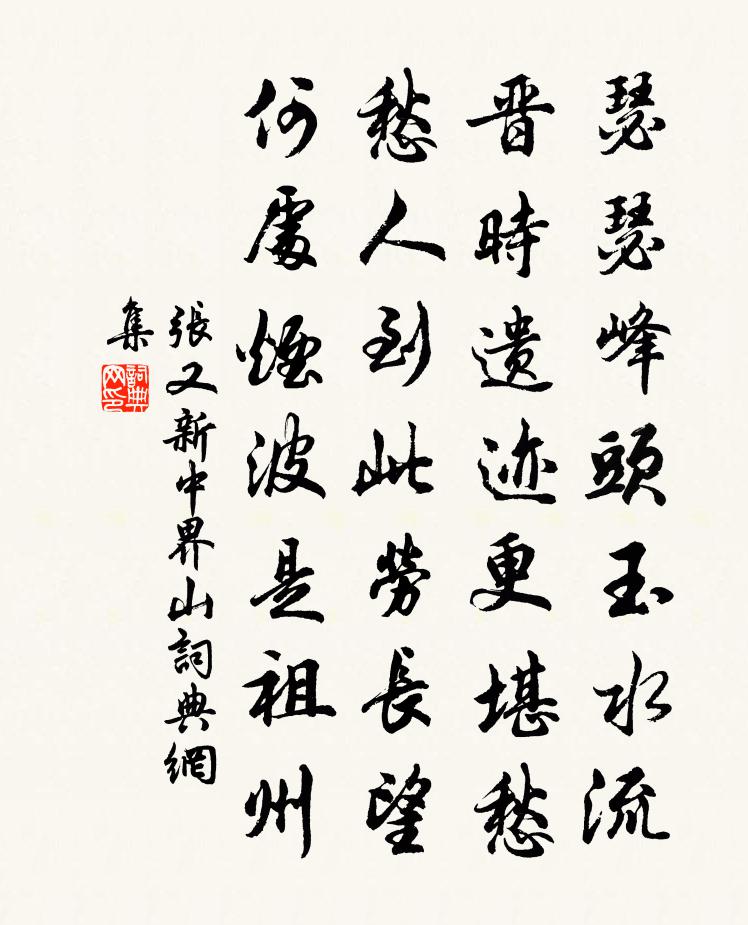 瑟瑟峰頭玉水流
晋時遗迹更堪愁
愁人到此勞長望
何處煙波是祖州
張又新中界山詞典網
集
詞典
网印